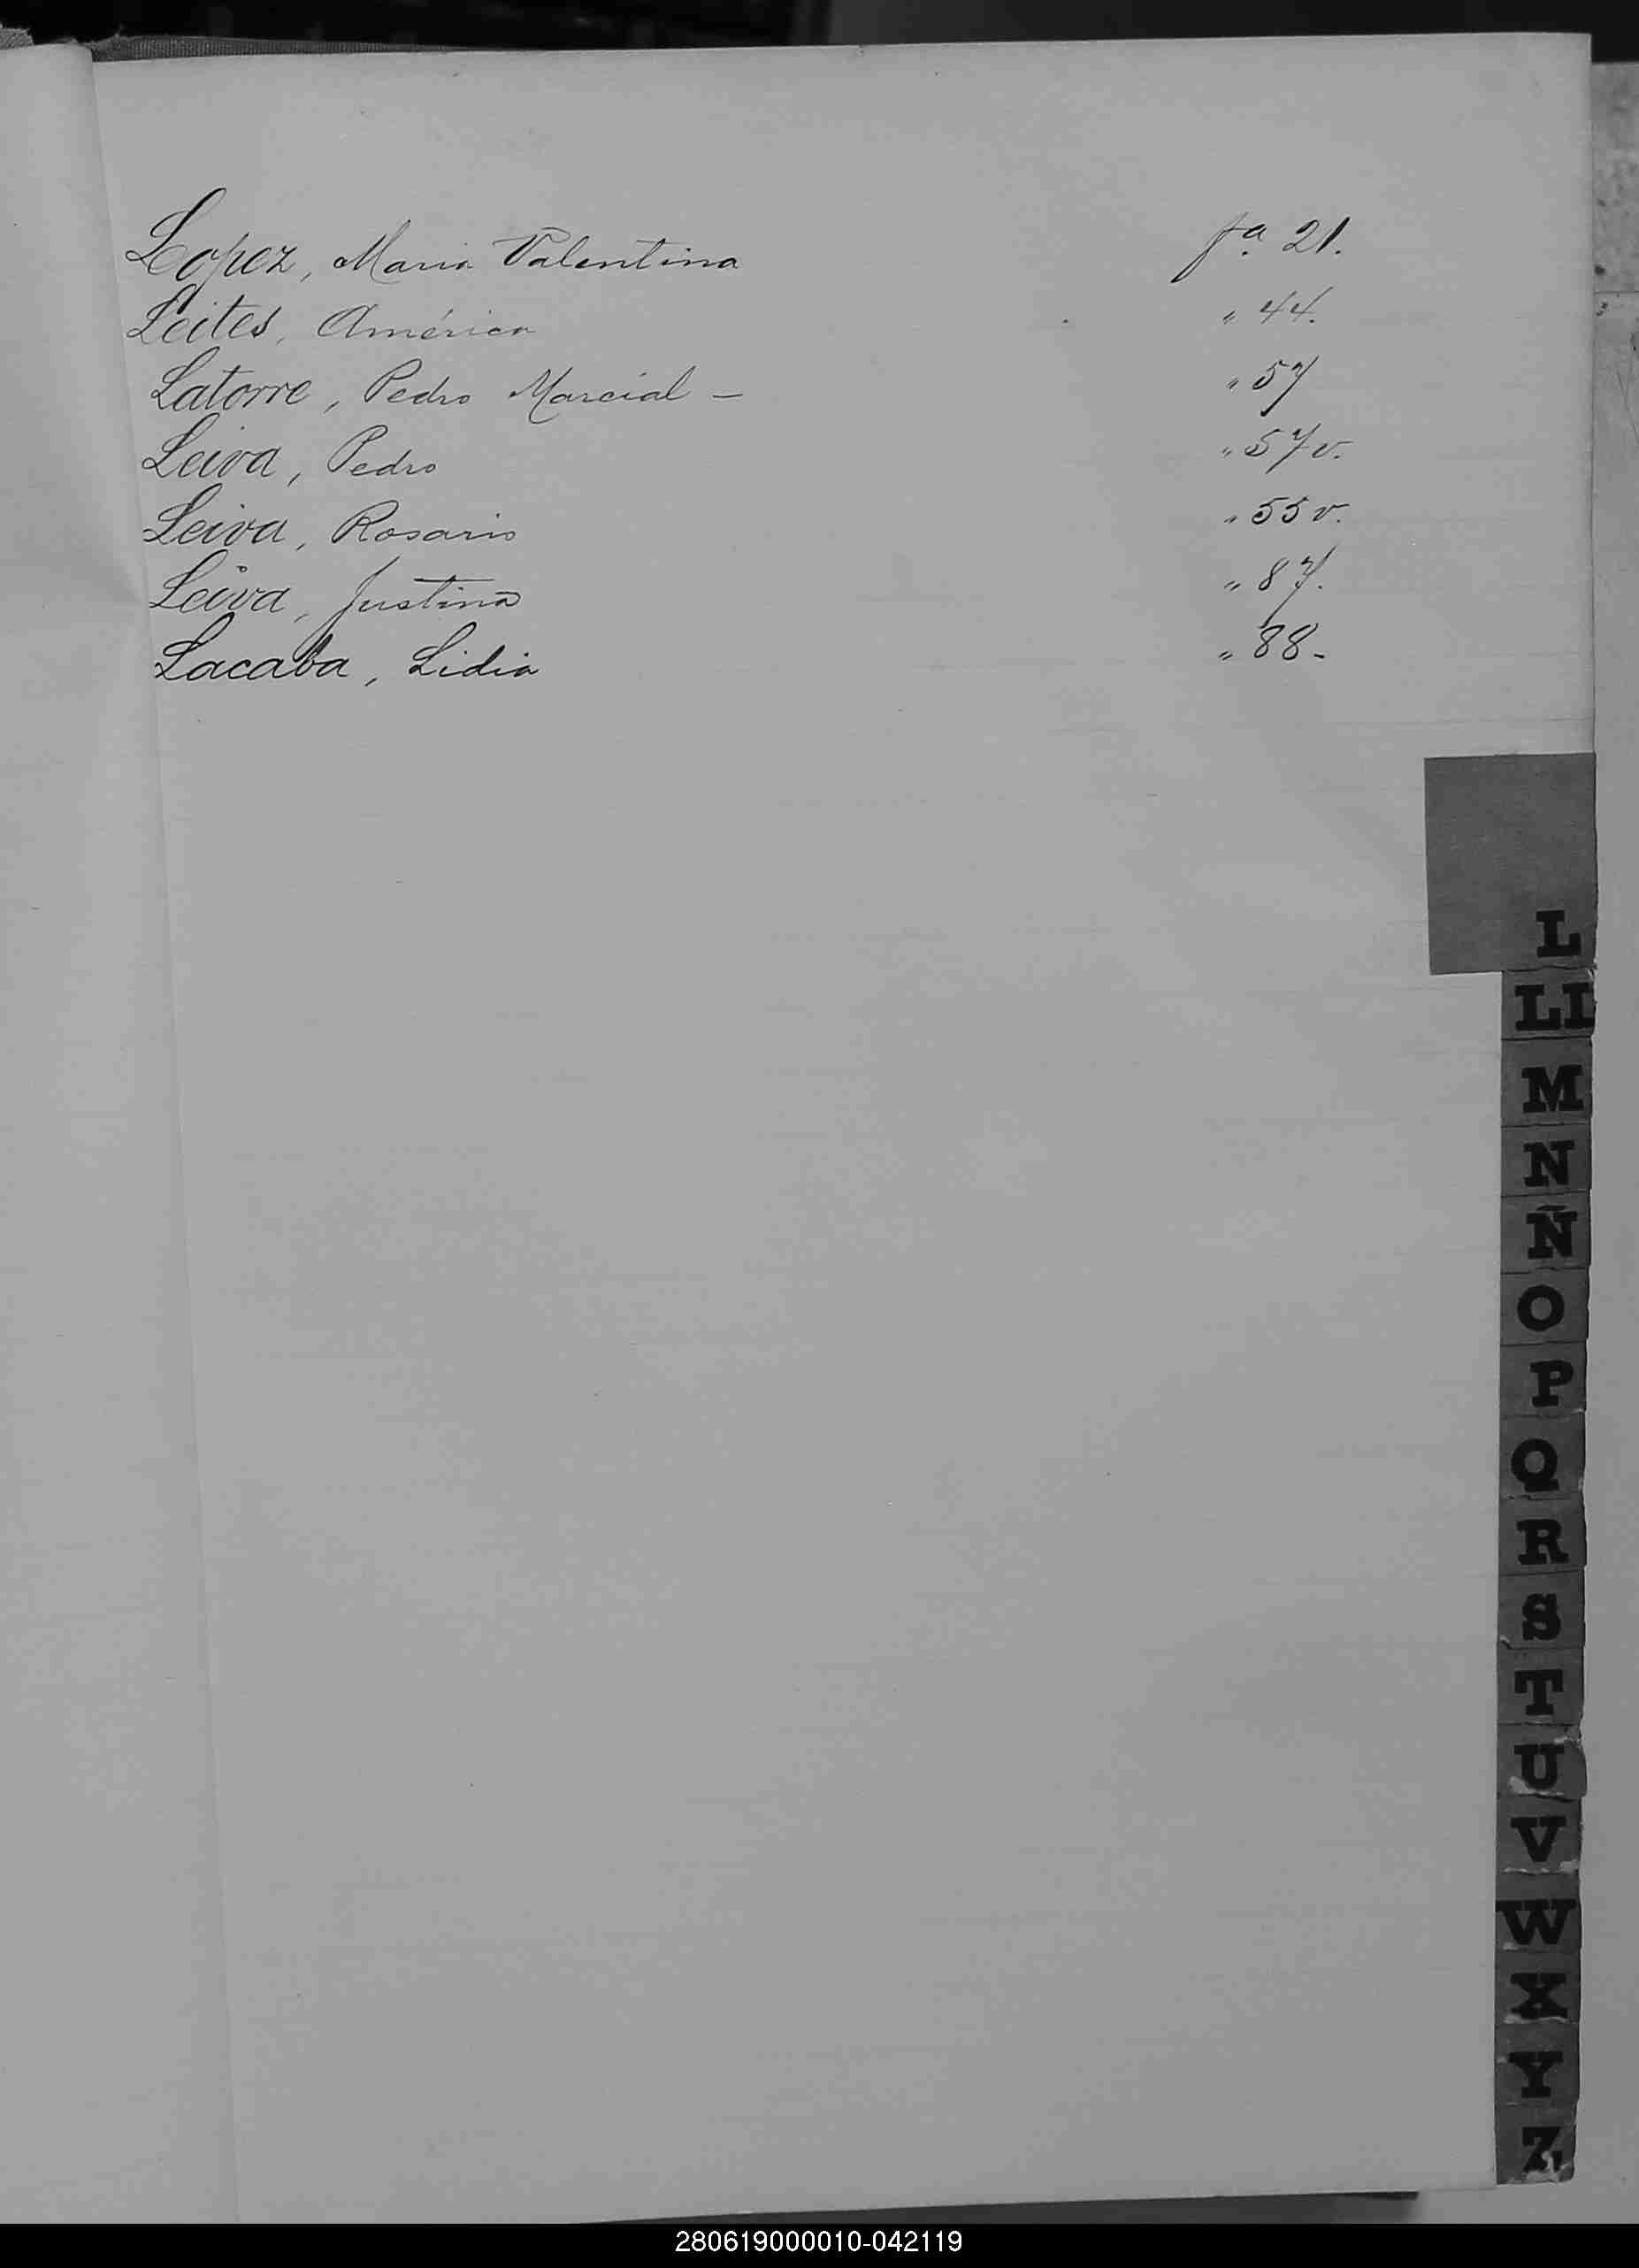 Lopez, Maria Valentina fa. 21.
Leites, América " 44.
Latorre, Pedro Marcial - " 57
Leiva, Pedro " 57 v.
Leiva, Rosario " 55 v.
Leiva, Justina " 87.
Lacaba, Lidia " 88-
L
LL
M
N
Ñ
O
P
Q
R
S
T
U
V
W
X
Y
Z
280619000010-042119